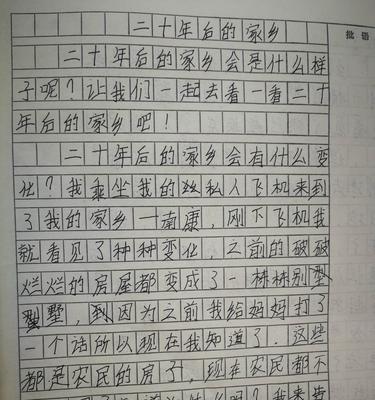 二十年后的家乡
批语
二十年后的家乡会是什么样
子呢?让我们一起去看一看二十
年后的家乡吧!
二十年后的家乡会有什么变
化?我乘坐我的私人飞机来到
了我的家乡一南康,刚下飞机我
就看见了种种变化,之前的破破
烂烂的房屋都变成了一栋栋别型
墅,到因为之前我给妈妈打了
一个话所以现在我知道了.这些
都是农民的房子,现在农民都不